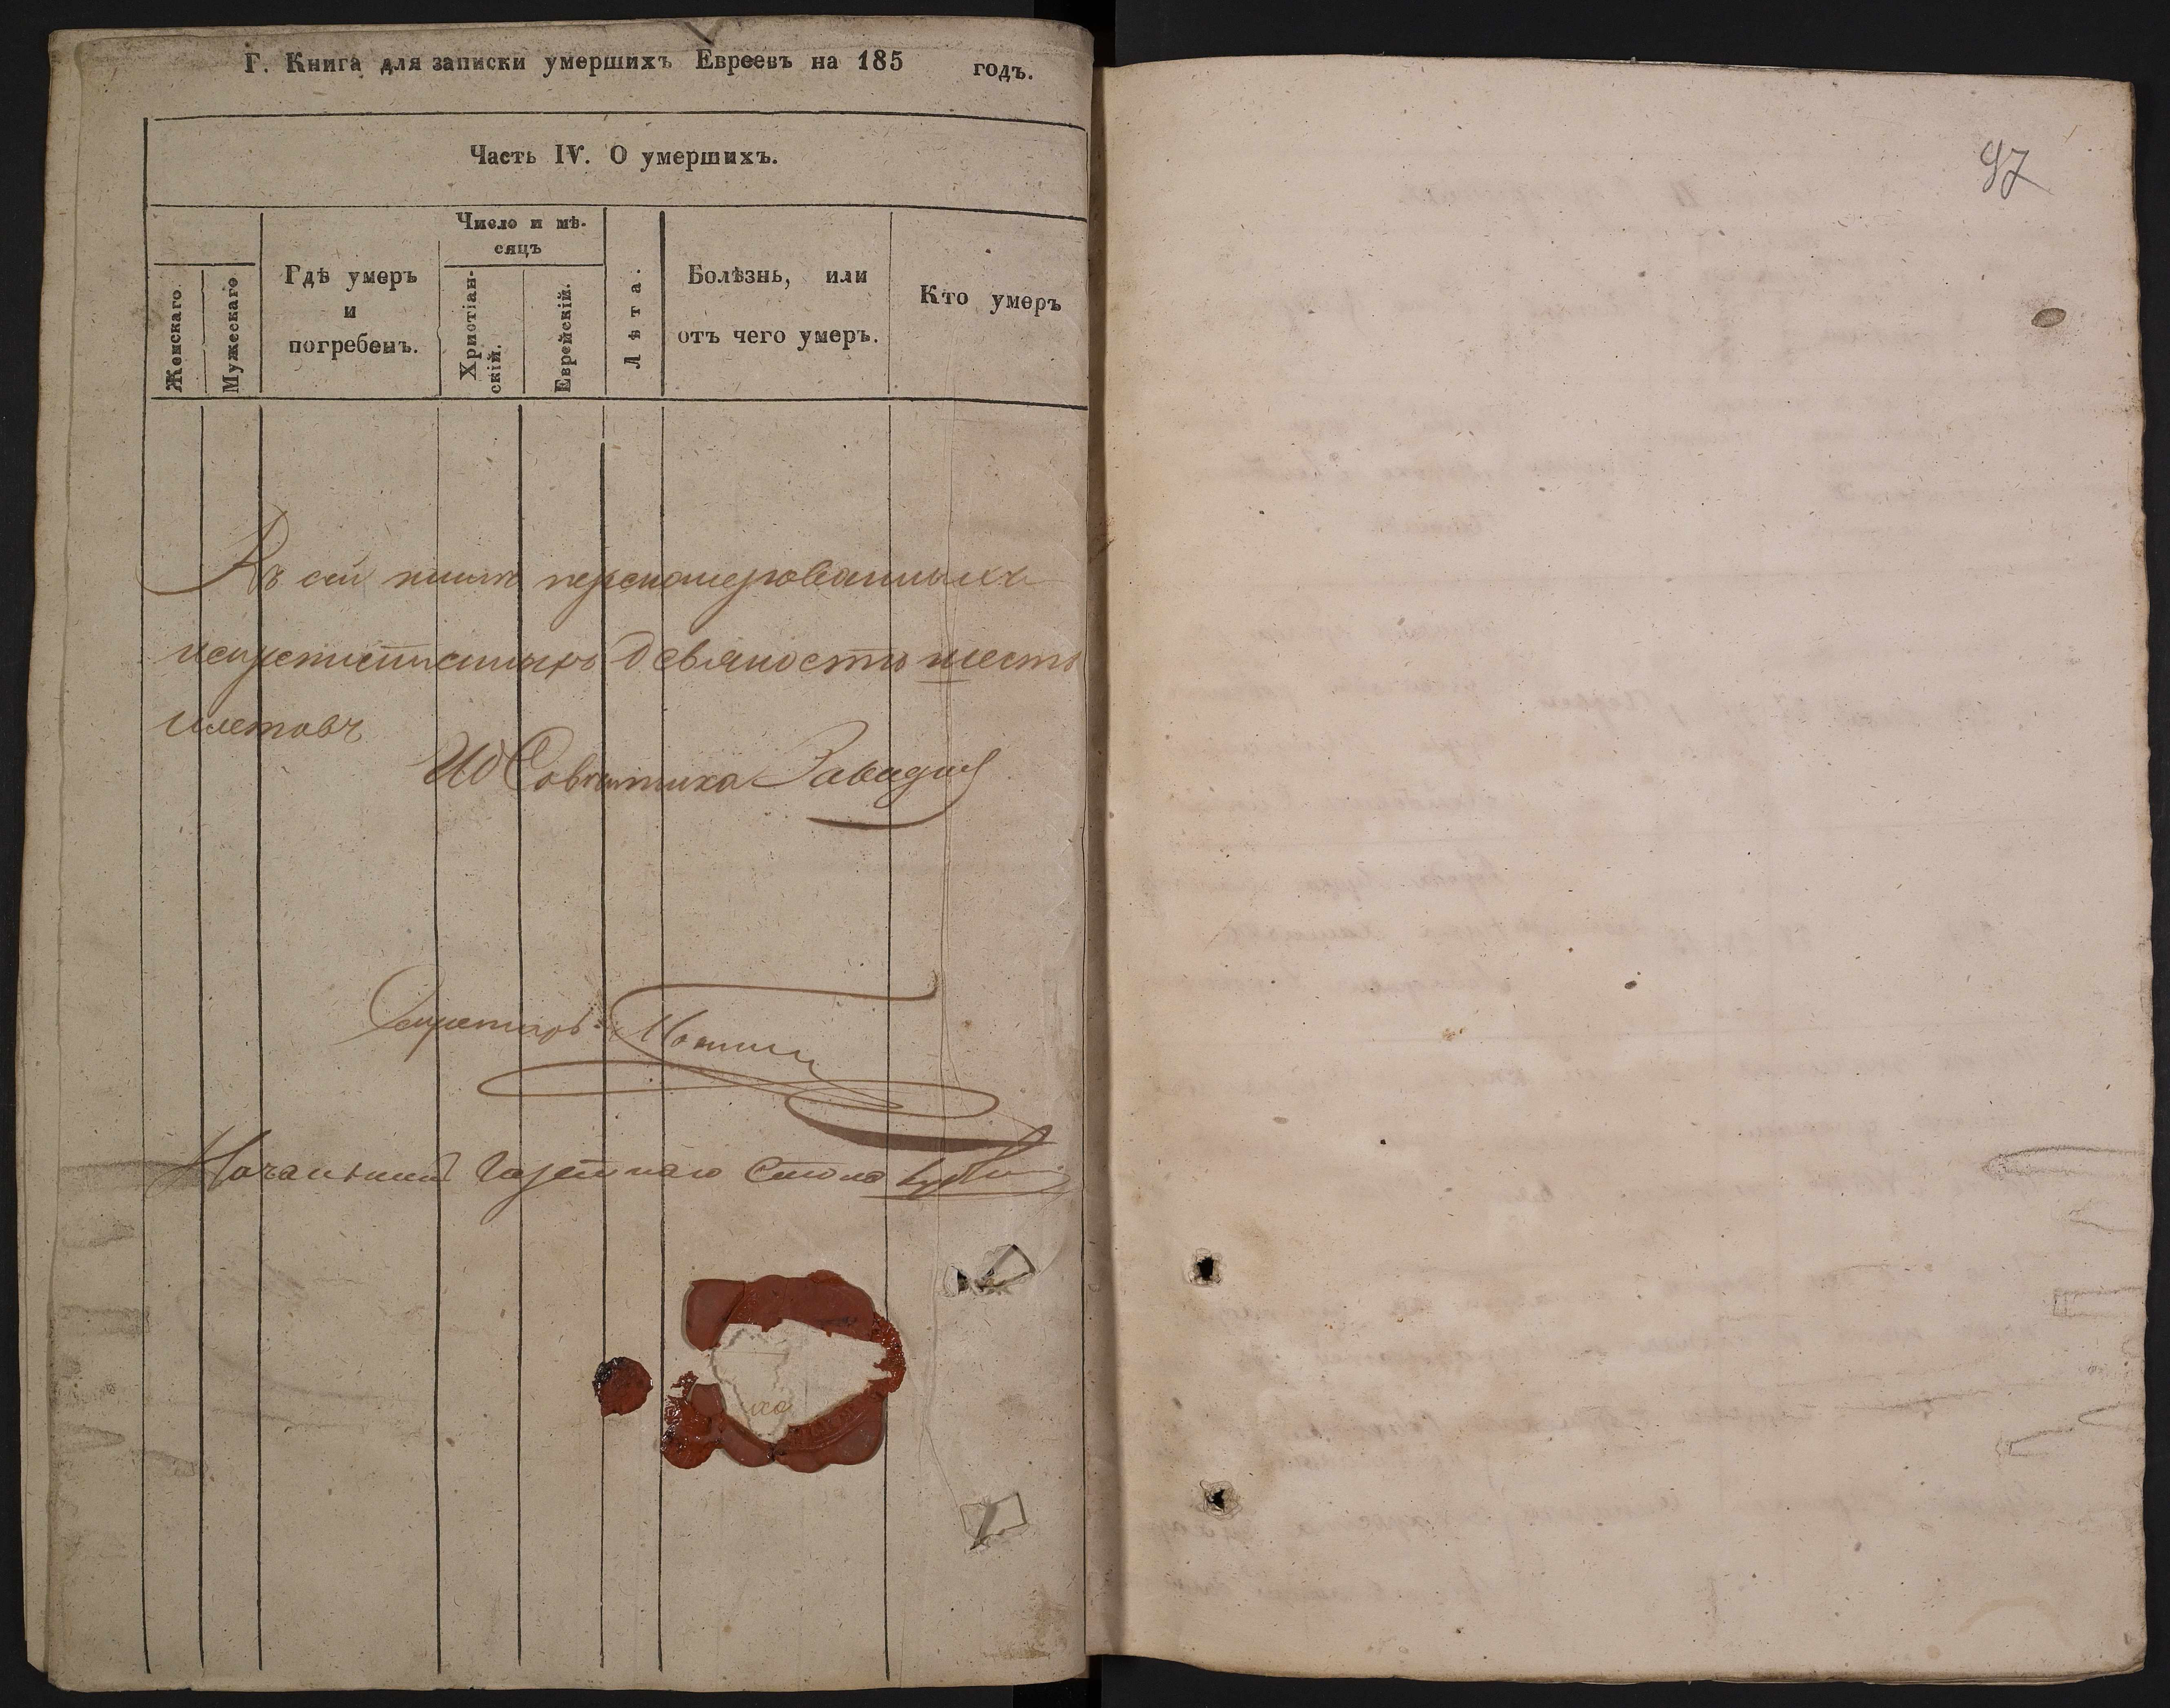 Г. Книга для записки умершихъ Евреевъ на 185 годъ.
Часть IV. О умершихъ.
Женскаго
Мужескаго
Гдѣ умеръ
и
погребенъ.
Число и мѣ-
сяцъ
Христіан-
скій.
Еврейскій.
Лѣта.
Болѣзнь, или
отъ чего умеръ.
Кто умеръ
Въ сей книгѣ перенумерованныхъ
девяносто шесть
листовъ
ИД Совѣтника
Секретарь
Начальникъ Газетнаго Стола
97